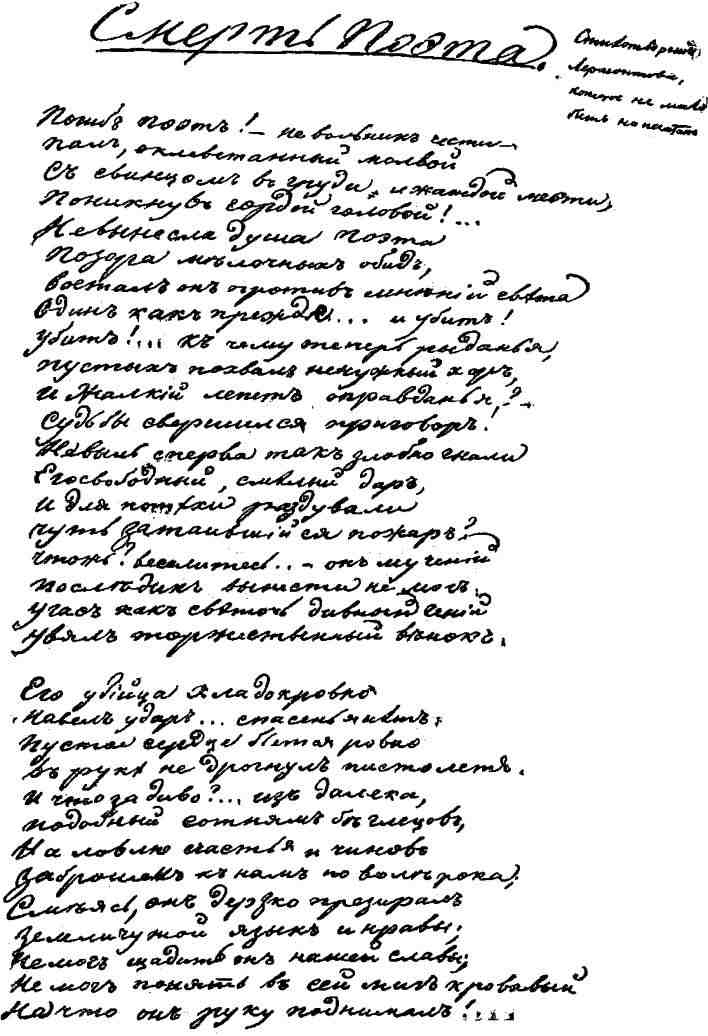 Смерть Поэта.
Стихотвореніе
Лермонтова,
которое не может
быть напечатано
Погибъ поэтъ! — невольникъ чести —
палъ, оклеветанный молвой
Съ свинцомъ въ груди, и жаждой мести,
Поникнувъ гордой головой!...
Невынесла душа поэта
Позора мѣлочныхъ обидъ,
возсталъ онъ противъ мнѣній свѣта
Одинъ какъ прежде... и убитъ!
убитъ!... къ чему теперь рыданья,
пустыхъ похвалъ ненужный хоръ,
И жалкій лепетъ оправданья,?—
Судьбы свершился приговоръ!
Невыль сперва такъ злобно гнали
Его свободный, смѣлый даръ,
и для потѣхи раздували
чуть затаившійся пожаръ?—
чтожъ? веселитесь.. — онъ мученій
послѣднихъ вынести не могъ:
угасъ какъ свѣточь дивной геній
увялъ торжественный вѣнокъ.
Его убійца хладокровно
навелъ ударъ... спасенья нѣтъ:
пустое сердце бьется ровно
въ рукѣ не дрогнулъ пистолетъ.
И что за диво?... изъ далека,
подобный сотнямъ бѣглецовъ,
На ловлю счастья и чиновъ
Заброшенъ къ намъ по волѣ рока;
Смѣясь, онъ дерзко презиралъ
земли чужой языкъ и нравы;
Не могъ щадить онъ нашей славы;
Не могъ понять въ сей мигъ кровавый
На что онъ руку поднималъ!....